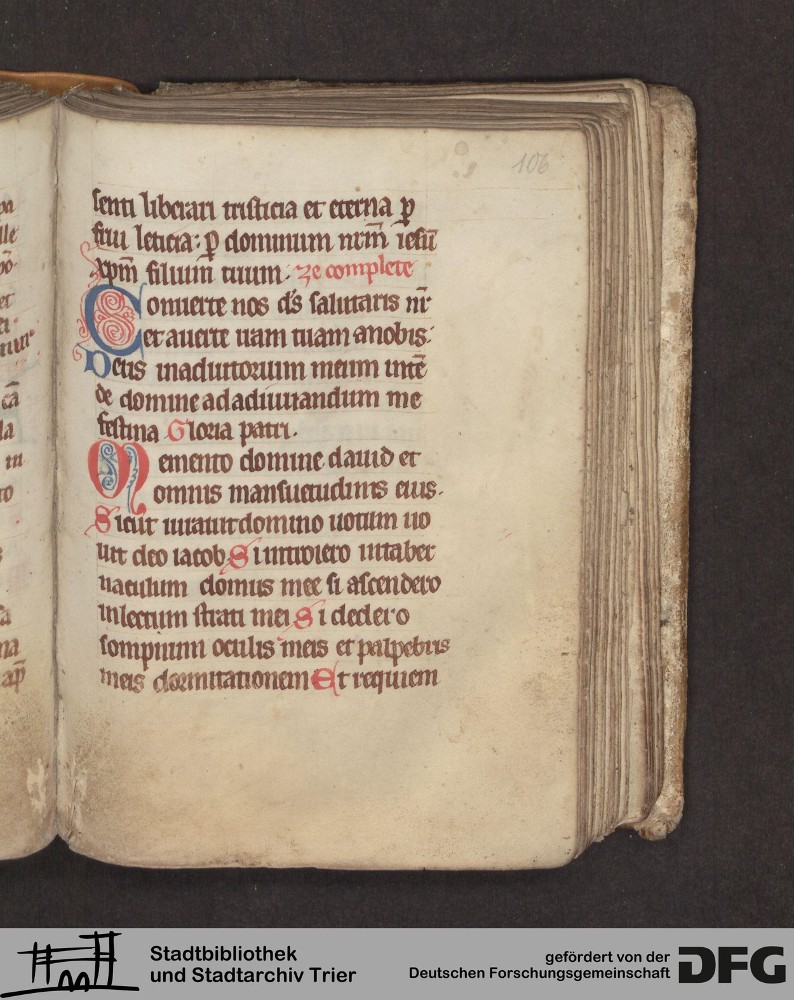 106
senti liberari tristicia et eterna p̲
frui leticia: p̲ dominum nr̄m iesū
xp̄m filium tuum. ze complete
Conuerte nos ds̄ salutaris nr̄
et auerte iram tuam anobis:
Deus inadiutorium meum intē
de domine ad adiuuandum me
festina Gloria patri.
Memento domine dauid et
omnis mansuetudinis eius.
Sicut iurauit domino uotum uo
uit deo iacob Si introiero intaber
naculum domus mee si ascendero
inlectum strati mei Si dedero
sompnum oculis meis et palpebris
meis dormitationem Et requiem
Stadtbibliothek
und Stadtarchiv Trier
gefördert von der
Deutschen Forschungsgemeinschaft
DFG